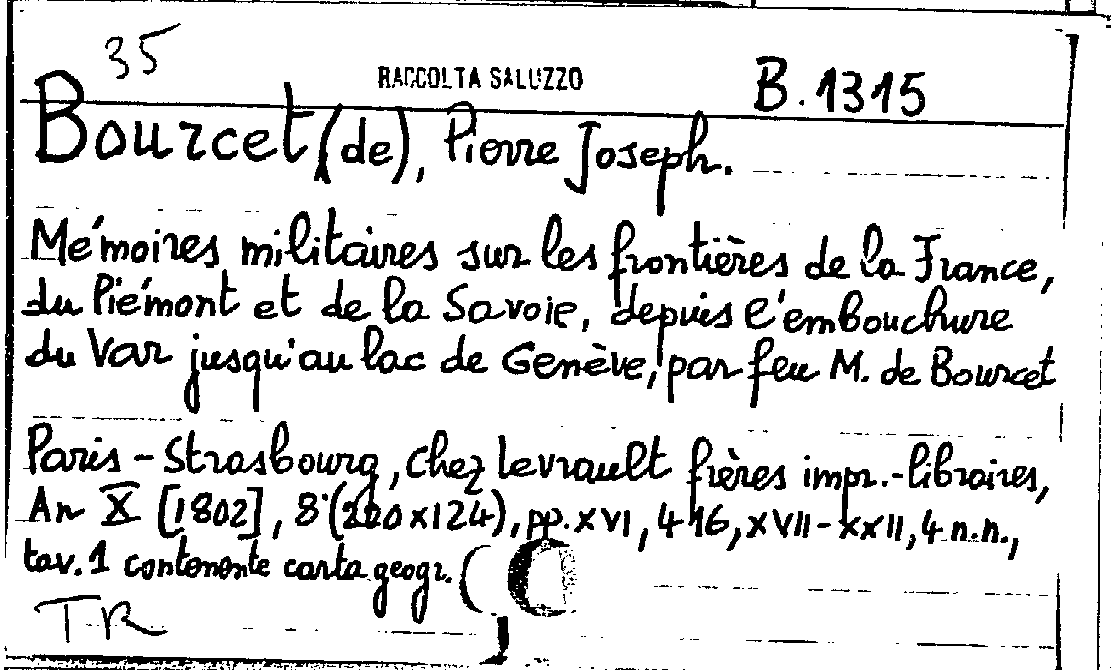 35
RACCOLTA SALUZZO
B. 1315
Bourcet (de), Pierre Joseph.
Mémoires militaires sur les frontières de la France,
du Piémont et de la Savoie, depuis l'embouchure
du Var jusqu'au lac de Genève, par feu M. de Bourcet
Paris - Strasbourg, chez Levrault frères impr.-libraires,
An X [1802], 8° (200x124), pp. XVI, 416, XVII-XXII, 4 n.n.,
tav. 1 contenente carta geogr.
TR